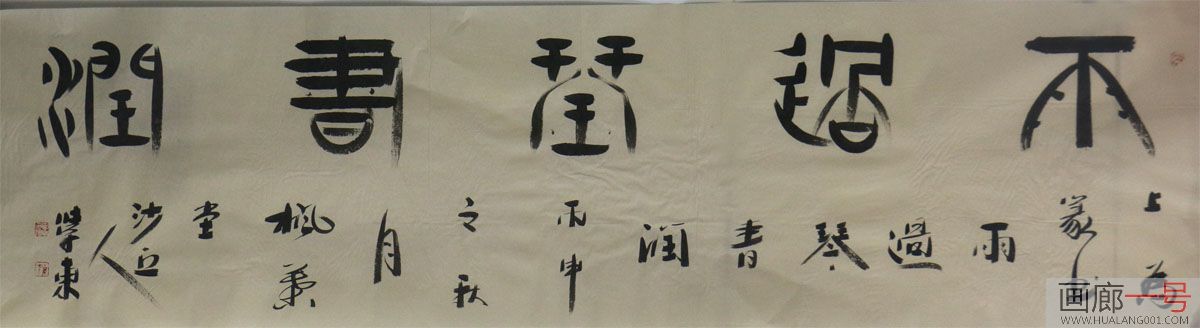 雨過琴書潤
上為
篆書
雨
過
琴
書
潤
丙申
之秋
月
楓葉
堂
沙丘
人
學東
画廊一号
WWW.HUALANG001.COM